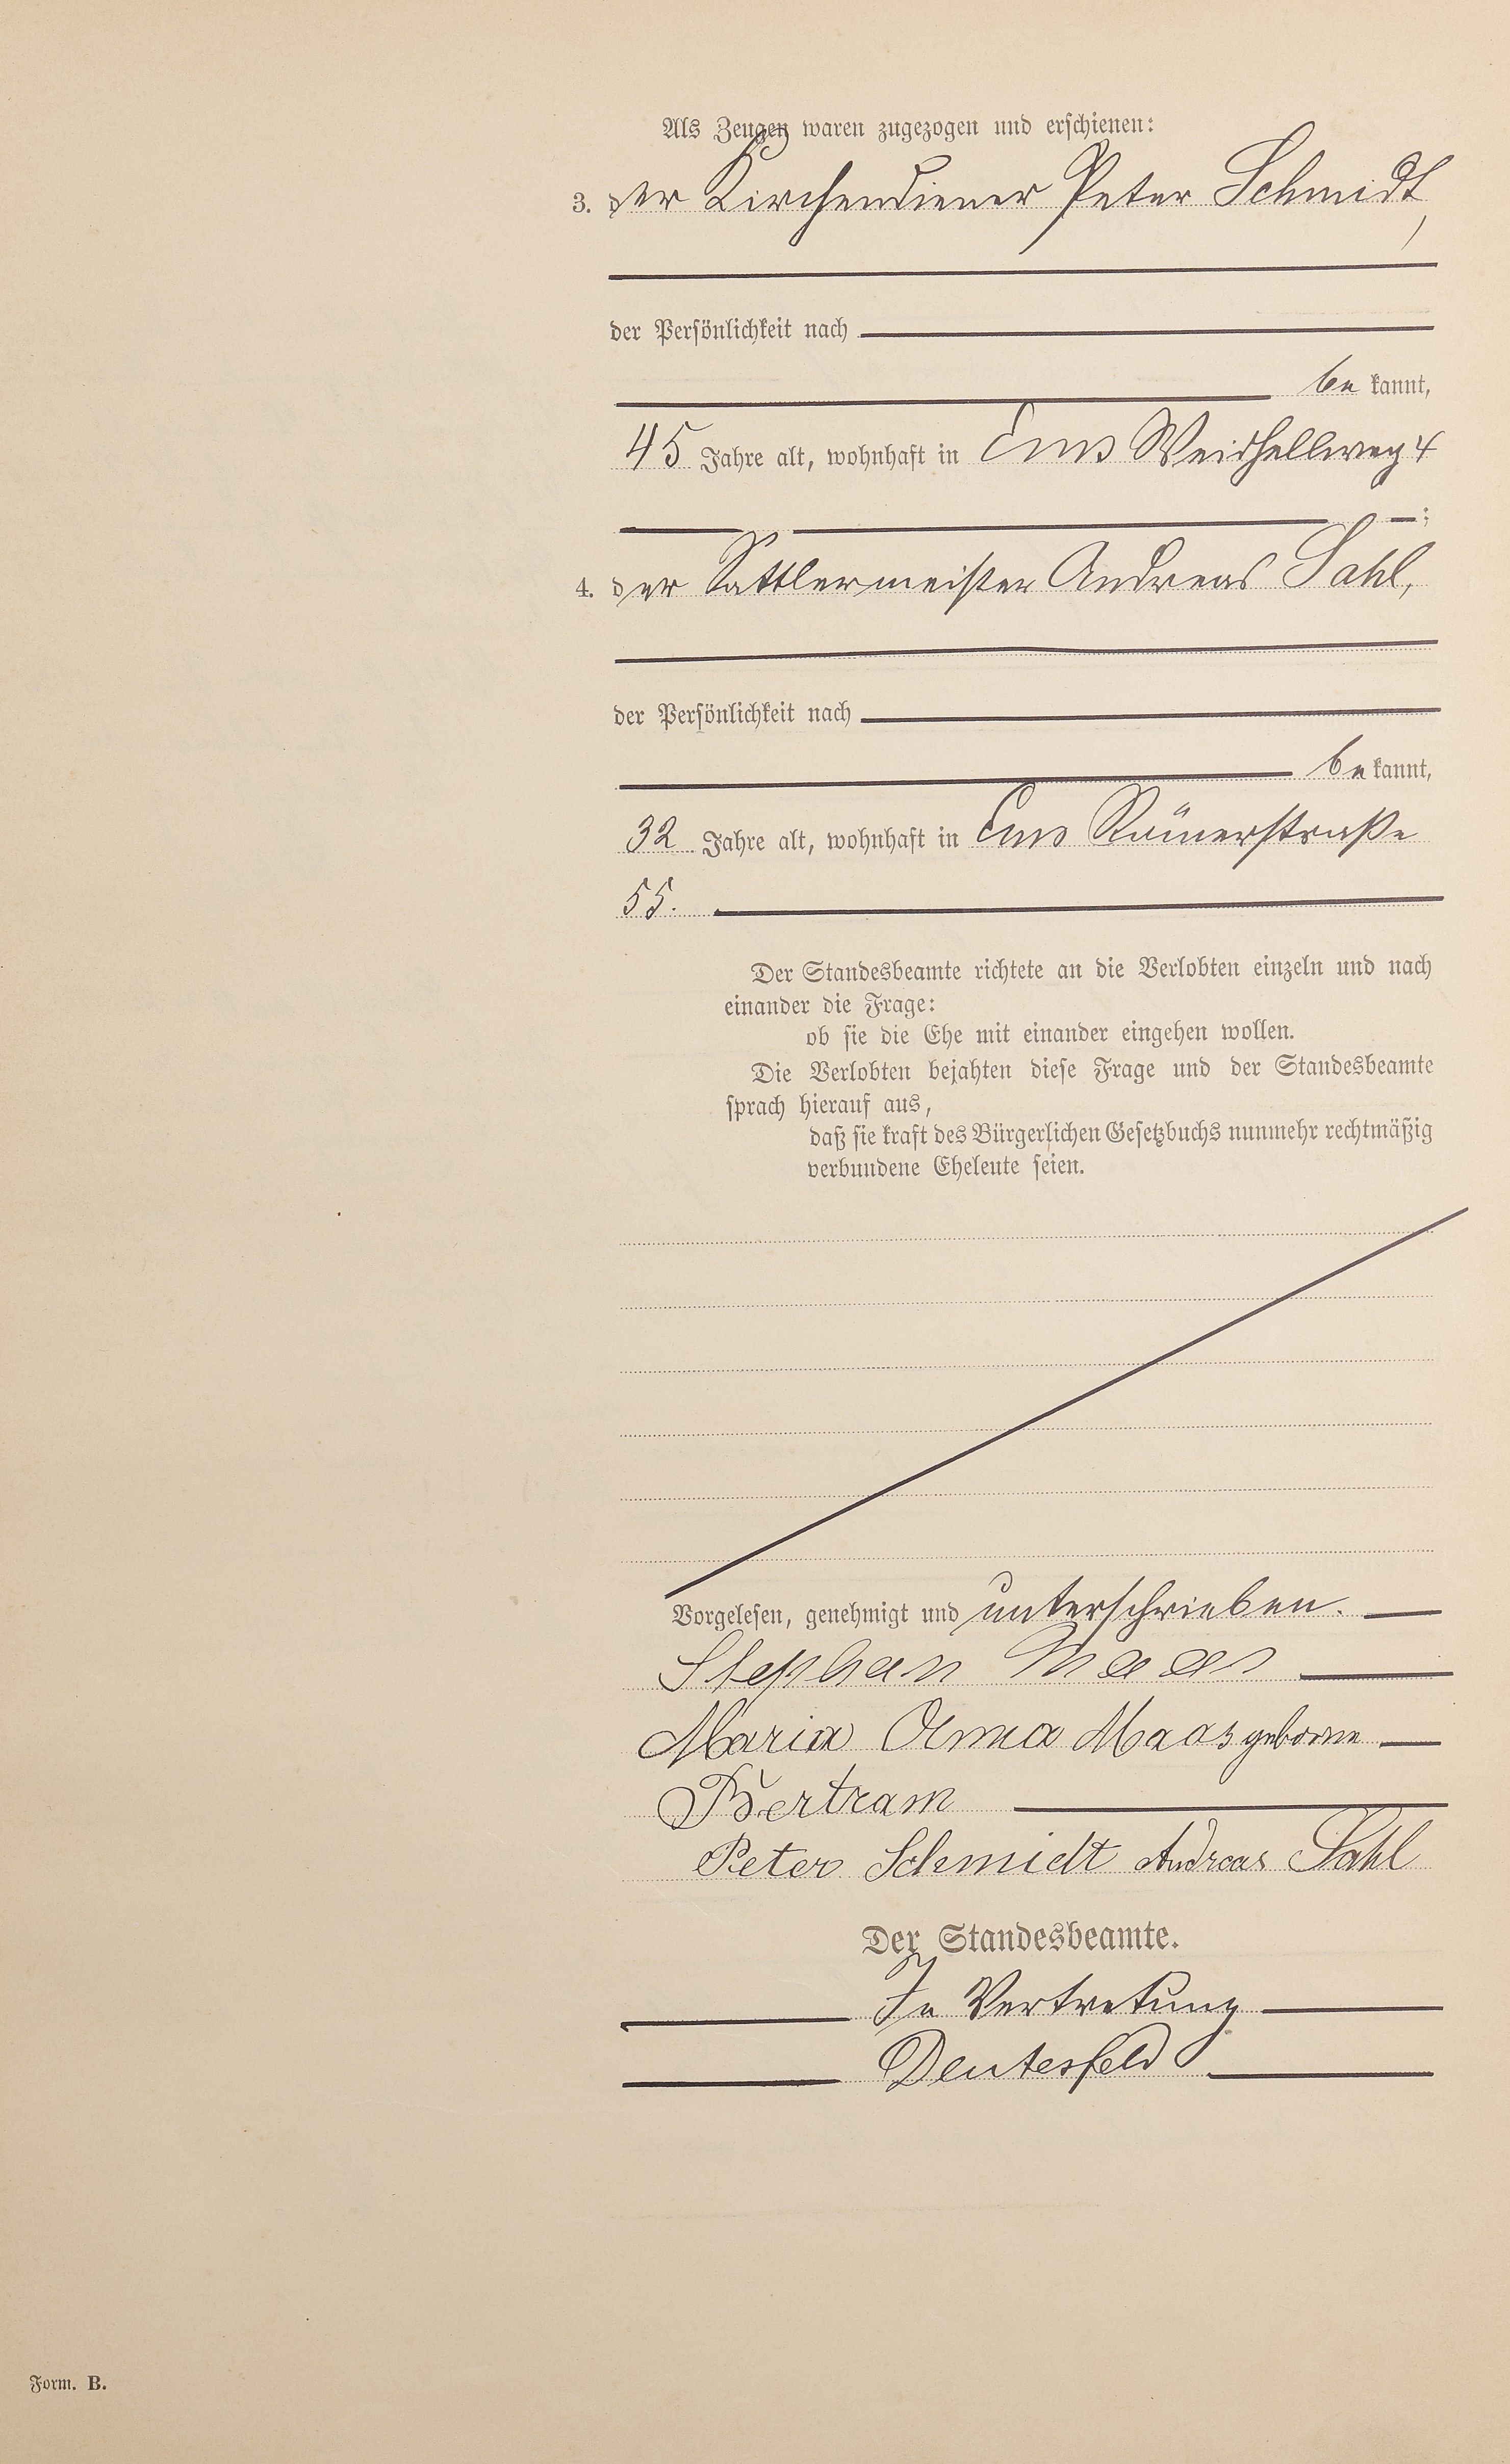 Als Zeugen waren zugezogen und erschienen:
3. der Kirchendiener Peter Schmidt,
der Persönlichkeit nach
bekannt,
45 Jahre alt, wohnhaft in Ems Weidhellweg 4
;
4. der Sattlermeister Andreas Sahl,
der Persönlichkeit nach
bekannt,
32 Jahre alt, wohnhaft in Ems Römerstraße
55.
Der Standesbeamte richtete an die Verlobten einzeln und nach
einander die Frage:
ob sie die Ehe mit einander eingehen wollen.
Die Verlobten bejahten diese Frage und der Standesbeamte
sprach hierauf aus,
daß sie kraft des Bürgerlichen Gesetzbuchs nunmehr rechtmäßig
verbundene Eheleute seien.
Vorgelesen, genehmigt und unterschrieben.
Stephan Maas
Maria Anna Maas geborne
Bertram
Peter Schmidt Andreas Sahl
Der Standesbeamte.
In Vertretung
Deutesfeld
Form. B.